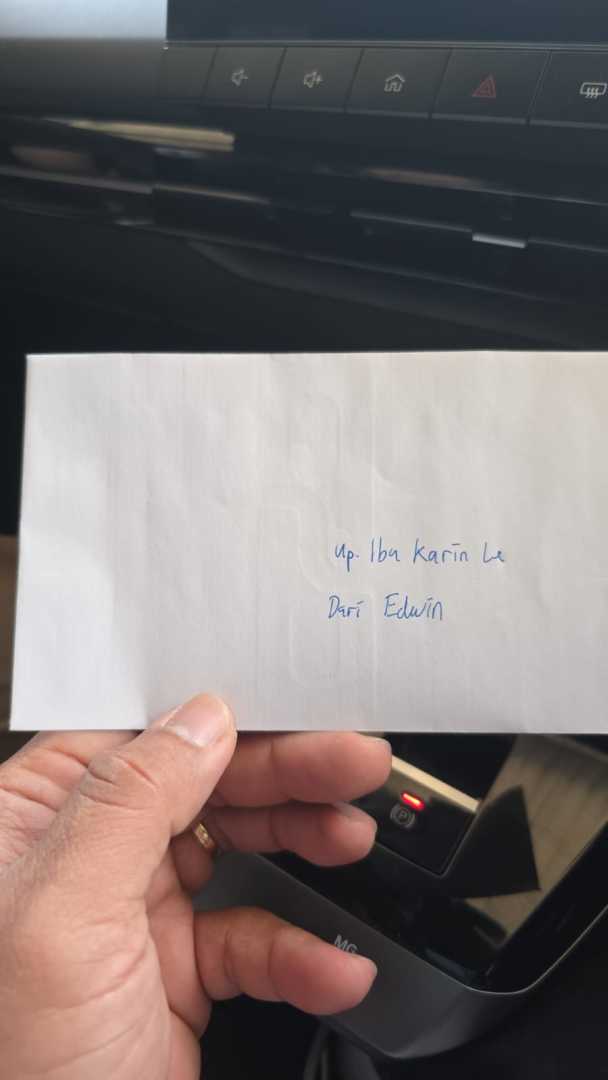 up. Ibu Karin Le
Dari Edwin
P
MG